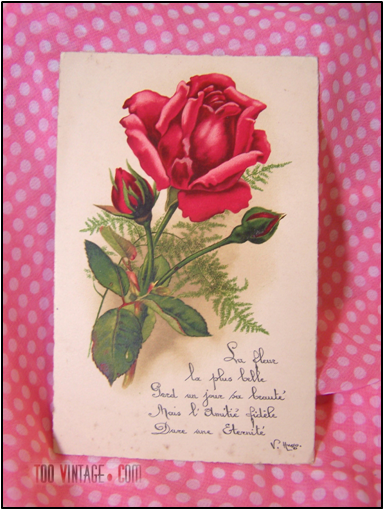 La fleur
la plus belle
Perd un jour sa beauté
Mais l'Amitié fidèle
Dure une Eternité
V. Hugo.
TOO VINTAGE.COM